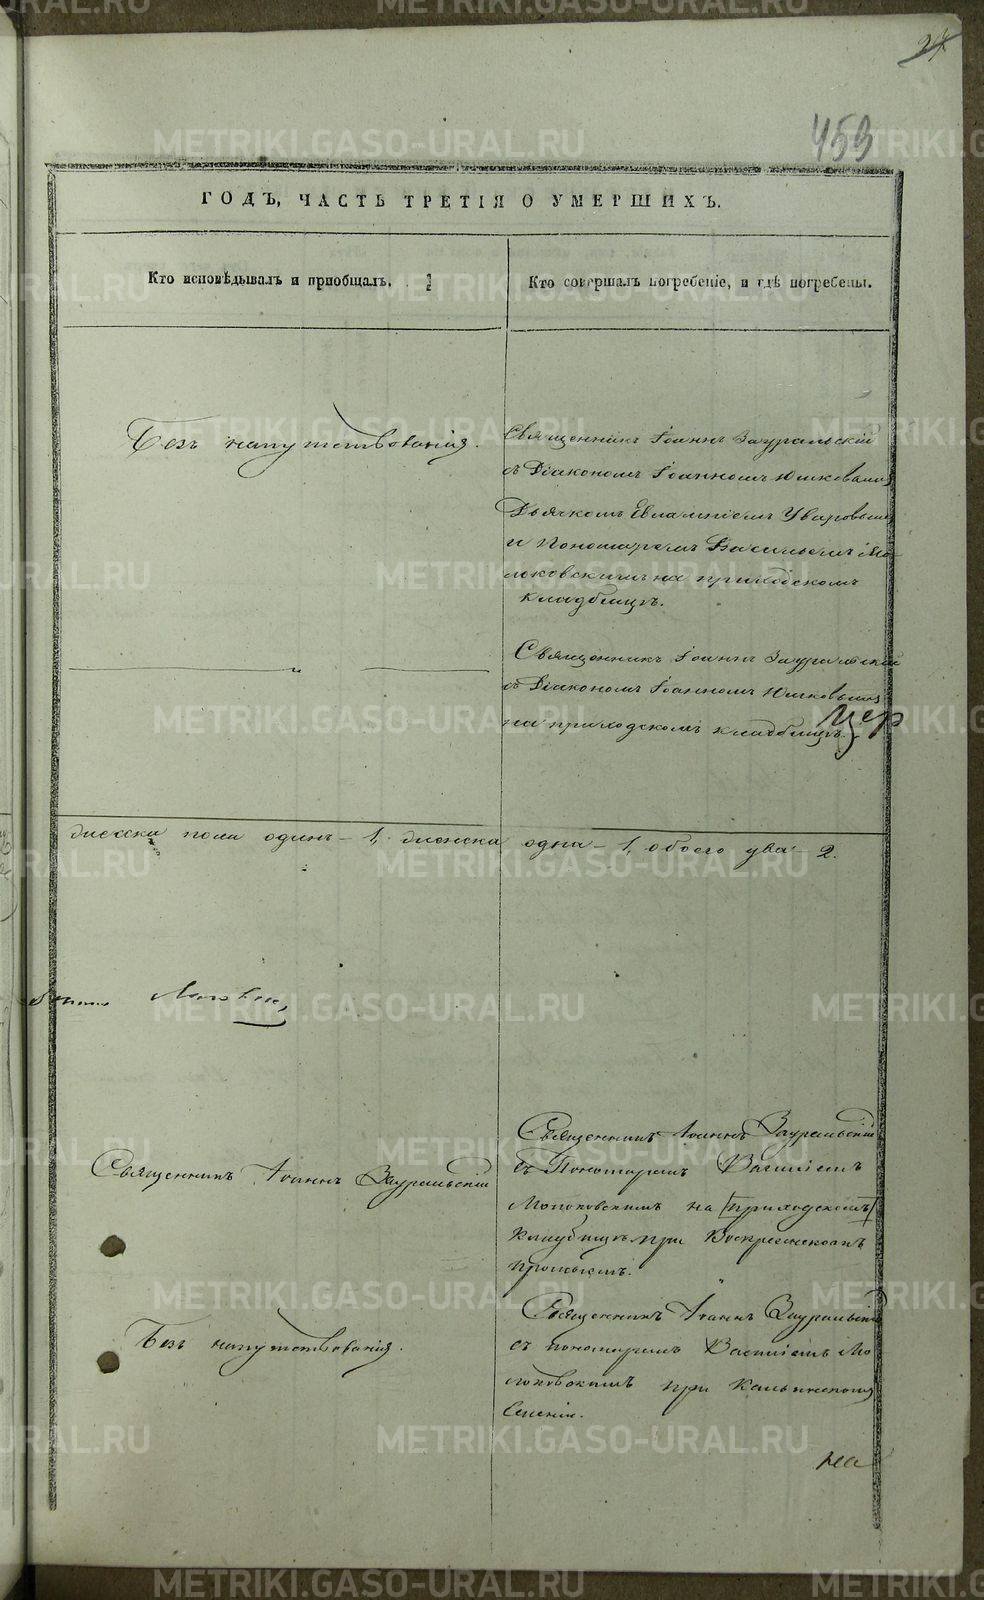 27
459
ГОДЪ, ЧАСТЬ ТРЕТІЯ О УМЕРШИХЪ.
Кто исповѣдывалъ и пріобщалъ.
Кто совершалъ погребеніе, и гдѣ погребены.
Безъ напутствованія.
Священникъ Іоаннъ Зауральскій
съ Діакономъ Іоанномъ Юшковымъ
Дьячкомъ Евлампіемъ Уваровымъ
и Пономаремъ Василіемъ Мо-
локовскимъ на приходскомъ
кладбищѣ.
— „ —
Священникъ Іоаннъ Зауральскій
съ Діакономъ Іоанномъ Юшковымъ
на приходскомъ кладбищѣ.
Цер
мужска пола одинъ – 1, женска одна – 1, обоего два – 2.
Священникъ Іоаннъ Зауральскій
Священникъ Іоаннъ Зауральскій
съ Пономаремъ Василіемъ
Молоковскимъ на [приходскомъ]
кладбищѣ при Воскресенскомъ
промыслѣ.
Безъ напутствованія.
Священникъ Іоаннъ Зауральскій
съ пономаремъ Василіемъ Мо
локовскимъ при
Селеніи.
на
METRIKI.GASO-URAL.RU